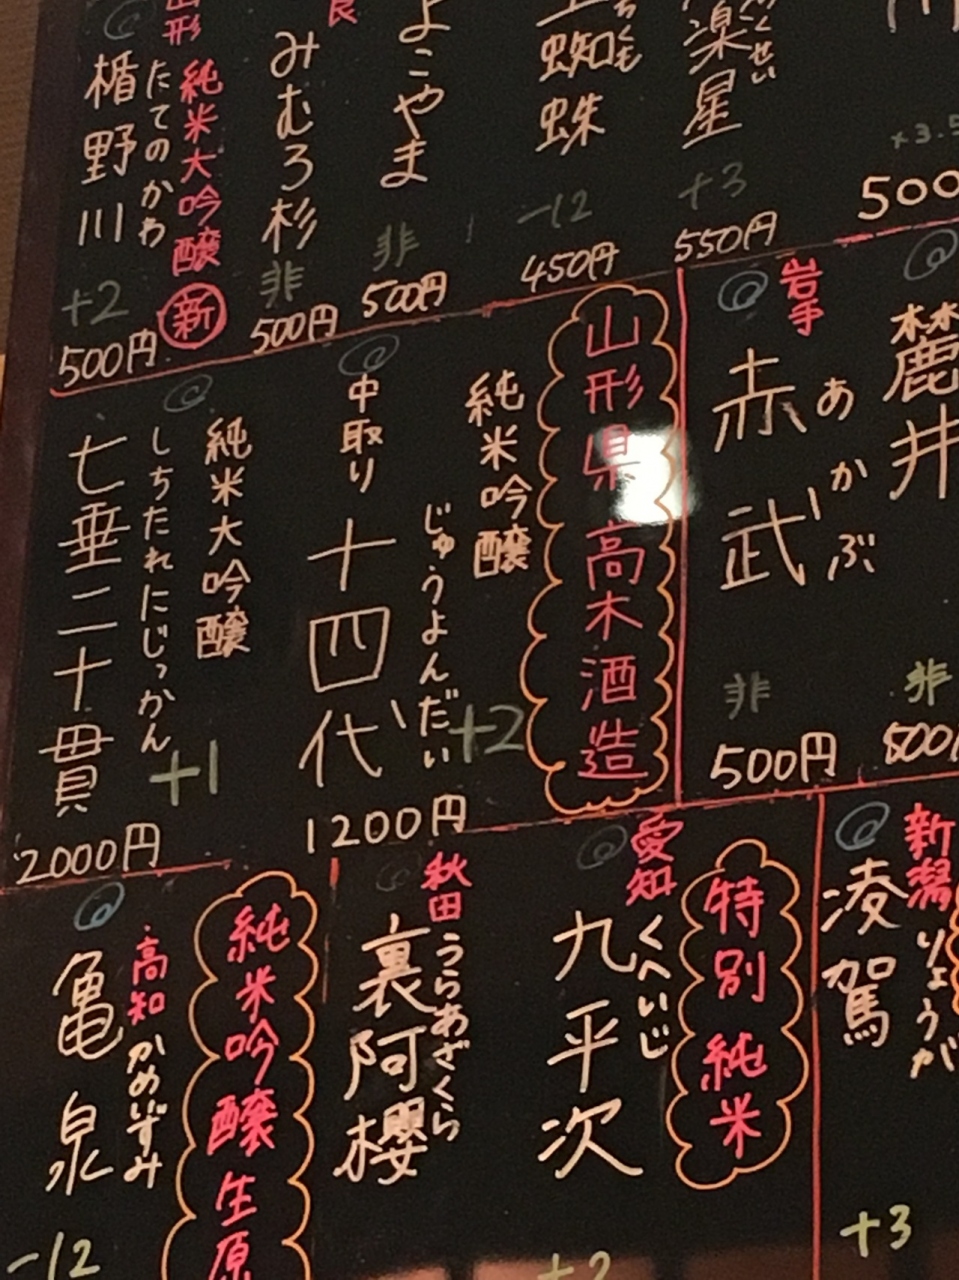 楽星
らくせい
+3
550円
土蜘蛛
つちぐも
-12
450円
よこやま
非
500円
みむろ杉
非
500円
山形
純米大吟醸
新
楯野川
たてのかわ
+2
500円
+3.5
500
麓井
非
500
岩手
赤武
あかぶ
非
500円
山形県高木酒造
純米吟醸
中取り
十四代
じゅうよんだい
+2
1200円
純米大吟醸
七垂二十貫
しちたれにじっかん
+1
2000円
新潟
凌駕
りょうが
+3
特別純米
愛知
九平次
くへいじ
+2
秋田
裏阿櫻
うらあざくら
純米吟醸生原
高知
亀泉
かめいずみ
-12